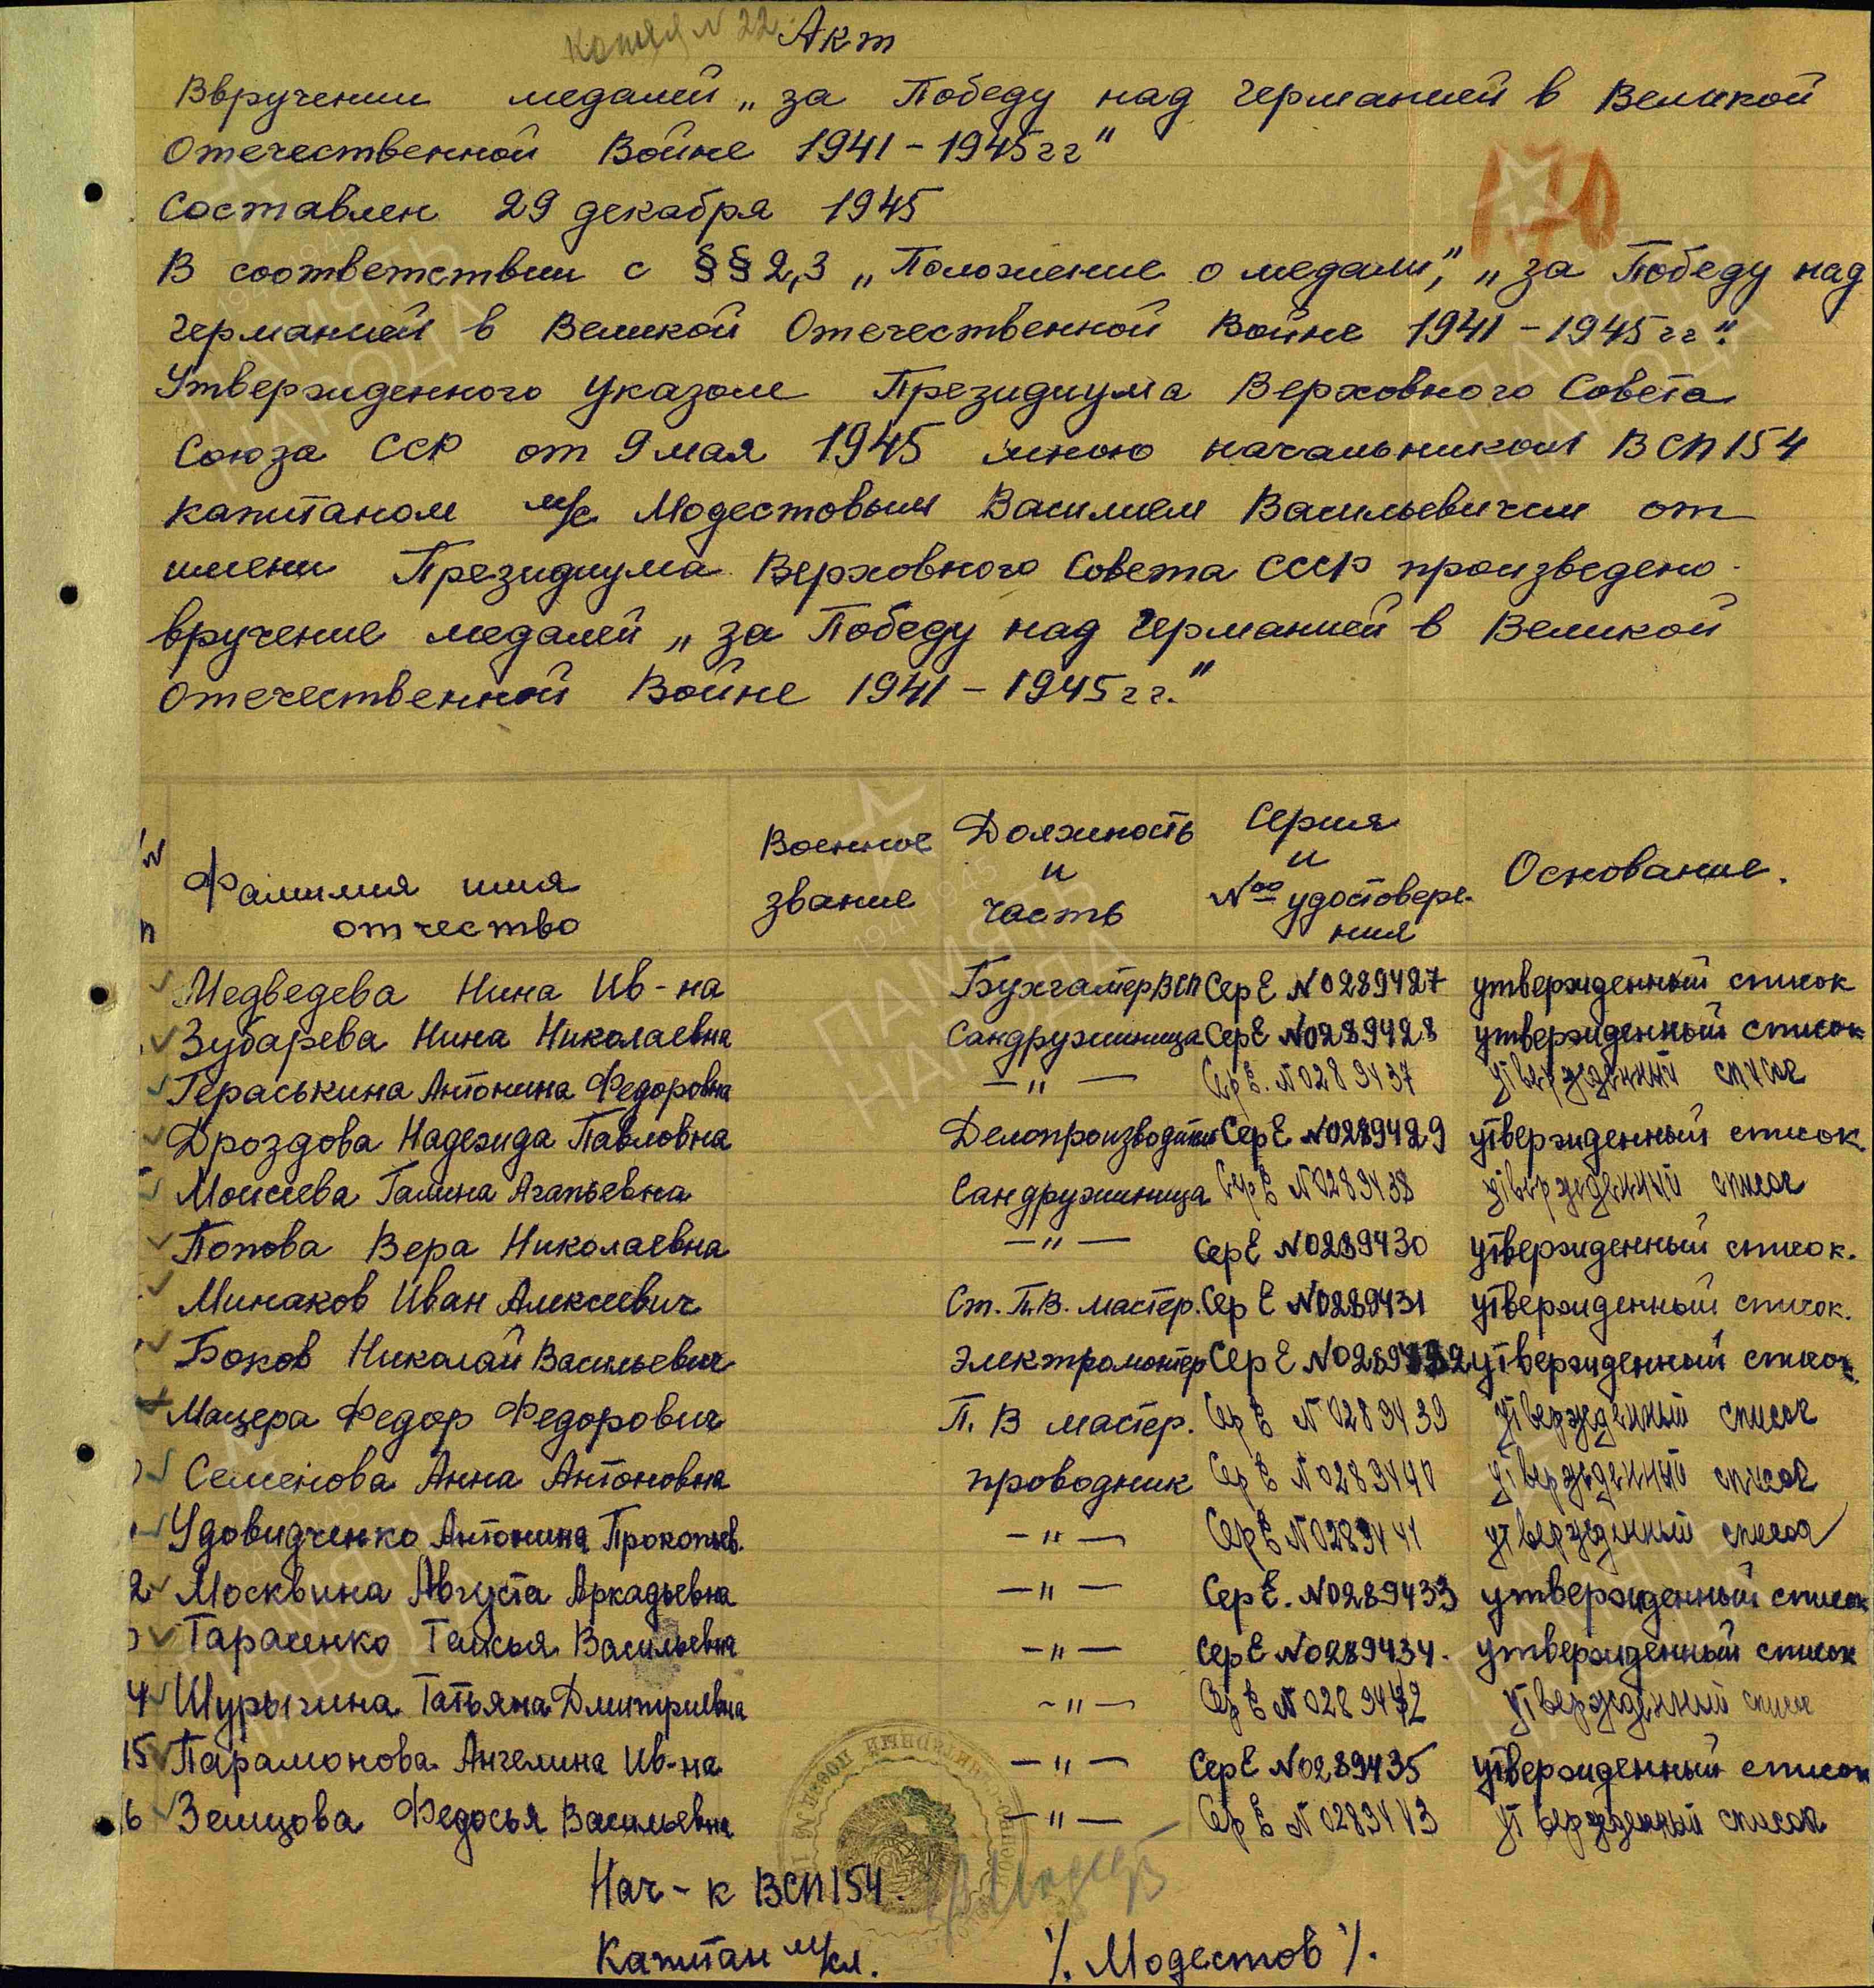 копия N 22
Акт
Ввручении медалей „за Победу над Германией в Великой
Отечественной Войне 1941-1945гг"
170
Составлен 29 декабря 1945
В соответствии с §§2,3 „Положение о медали", „за Победу над
Германией в Великой Отечественной Войне 1941-1945гг".
Утвержденного Указом Президиума Верховного Совета
Союза ССР от 9 мая 1945 мною начальником ВСП 154
капитаном м/с Модестовым Василием Васильевичем от
имени Президиума Верховного Совета СССР произведено
вручение медалей „за Победу над Германией в Великой
Отечественной Войне 1941-1945гг."
N п Фамилия имя отчество Военное звание Должность и часть Серия и №оо удостоверения Основание.
Медведева Нина Ив-на Бухгалтер ВСП Сер Е N0289427 утвержденный список
Зубарева Нина Николаевна Сандружиница Сер Е N0289428 утвержденный список
Гераськина Антонина Федоровна -"- Сер Е. N0289437 утвержденный список
Дроздова Надежида Павловна Делопроизводитель Сер Е N0289429 утвержденный список
Моисеева Галина Агапьевна Сандружиница Сер Е N0289438 утвержденный список
Попова Вера Николаевна -"- Сер Е N0289430 утвержденный список.
Минаков Иван Алексеевич Ст. П.В. мастер. Сер Е N0289431 утвержденный список.
Боков Николай Васильевич Электромонтер Сер Е N0289432 утвержденный список
Мацера Федор Федорович П. В мастер. Сер Е N0289439 утвержденный список
Семенова Анна Антоновна проводник Сер Е N0289440 утвержденный список
Удовидченко Антонина Прокопьев. -"- Сер Е N0289441 утвержденный список
2 Москвина Августа Аркадьевна -"- Сер Е. N0289433 утвержденный список
Тарасенко Таисья Васильевна -"- Сер Е N0289434. утвержденный список
4 Шурыгина Татьяна Дмитриевна -"- Сер Е N0289442 утвержденный список
15 Парамонова Ангелина Ив-на -"- Сер Е N0289435 утвержденный список
6 Земцова Федосья Васильевна -"- Сер Е N0289443 утвержденный список
Нач-к ВСП 154.
Капитан м/сл. /. Модестов /.
1941 1945
ПАМЯТЬ
НАРОДА